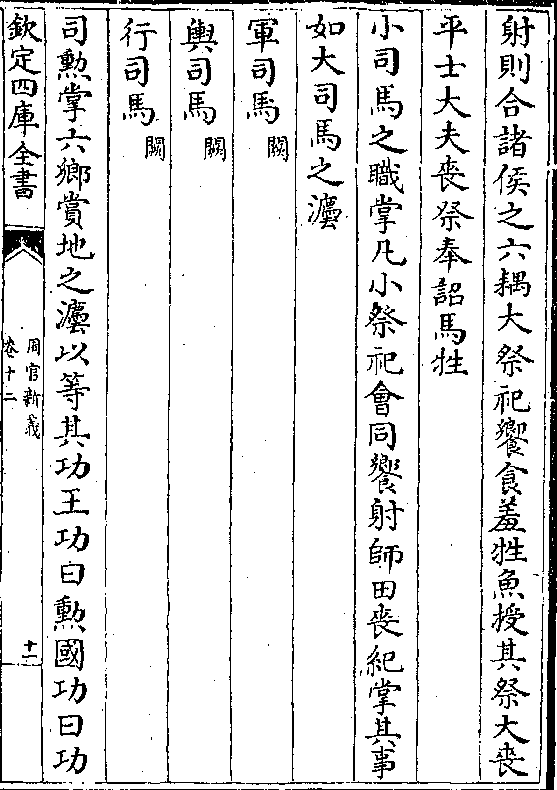 射則合諸侯之六耦大祭祀饗食羞牲魚授其祭大喪
平士大夫喪祭奉詔馬牲
小司馬之職掌凡小祭祀會同饗射師田喪紀掌其事
如大司馬之灋
軍司馬闕
輿司馬闕
行司馬闕
司勲掌六鄉賞地之灋以等其功王功曰勲國功曰功
欽定四庫全書
周官新義
卷十二
十一